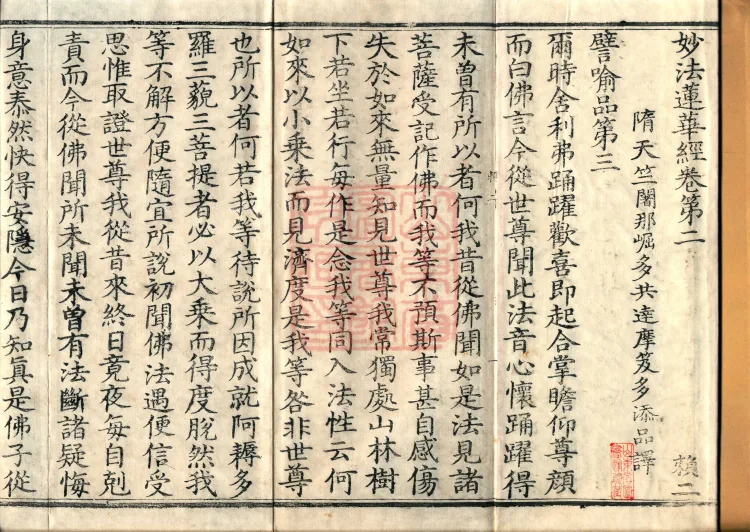 妙法蓮華經卷第二 賴二
隋天竺闍那崛多共達摩笈多添品譯
譬喻品第三
爾時舍利弗踊躍歡喜即起合掌瞻仰尊顏
而白佛言今從世尊聞此法音心懷踊躍得
未曾有所以者何我昔從佛聞如是法見諸
菩薩受記作佛而我等不預斯事甚自感傷
失於如來無量知見世尊我常獨處山林樹
下若坐若行每作是念我等同入法性云何
如來以小乘法而見濟度是我等咎非世尊
也所以者何若我等待說所因成就阿耨多
羅三藐三菩提者必以大乘而得度脫然我
等不解方便隨宜所說初聞佛法遇便信受
思惟取證世尊我從昔來終日竟夜每自剋
責而今從佛聞所未聞未曾有法斷諸疑悔
身意泰然快得安隱今日乃知真是佛子從